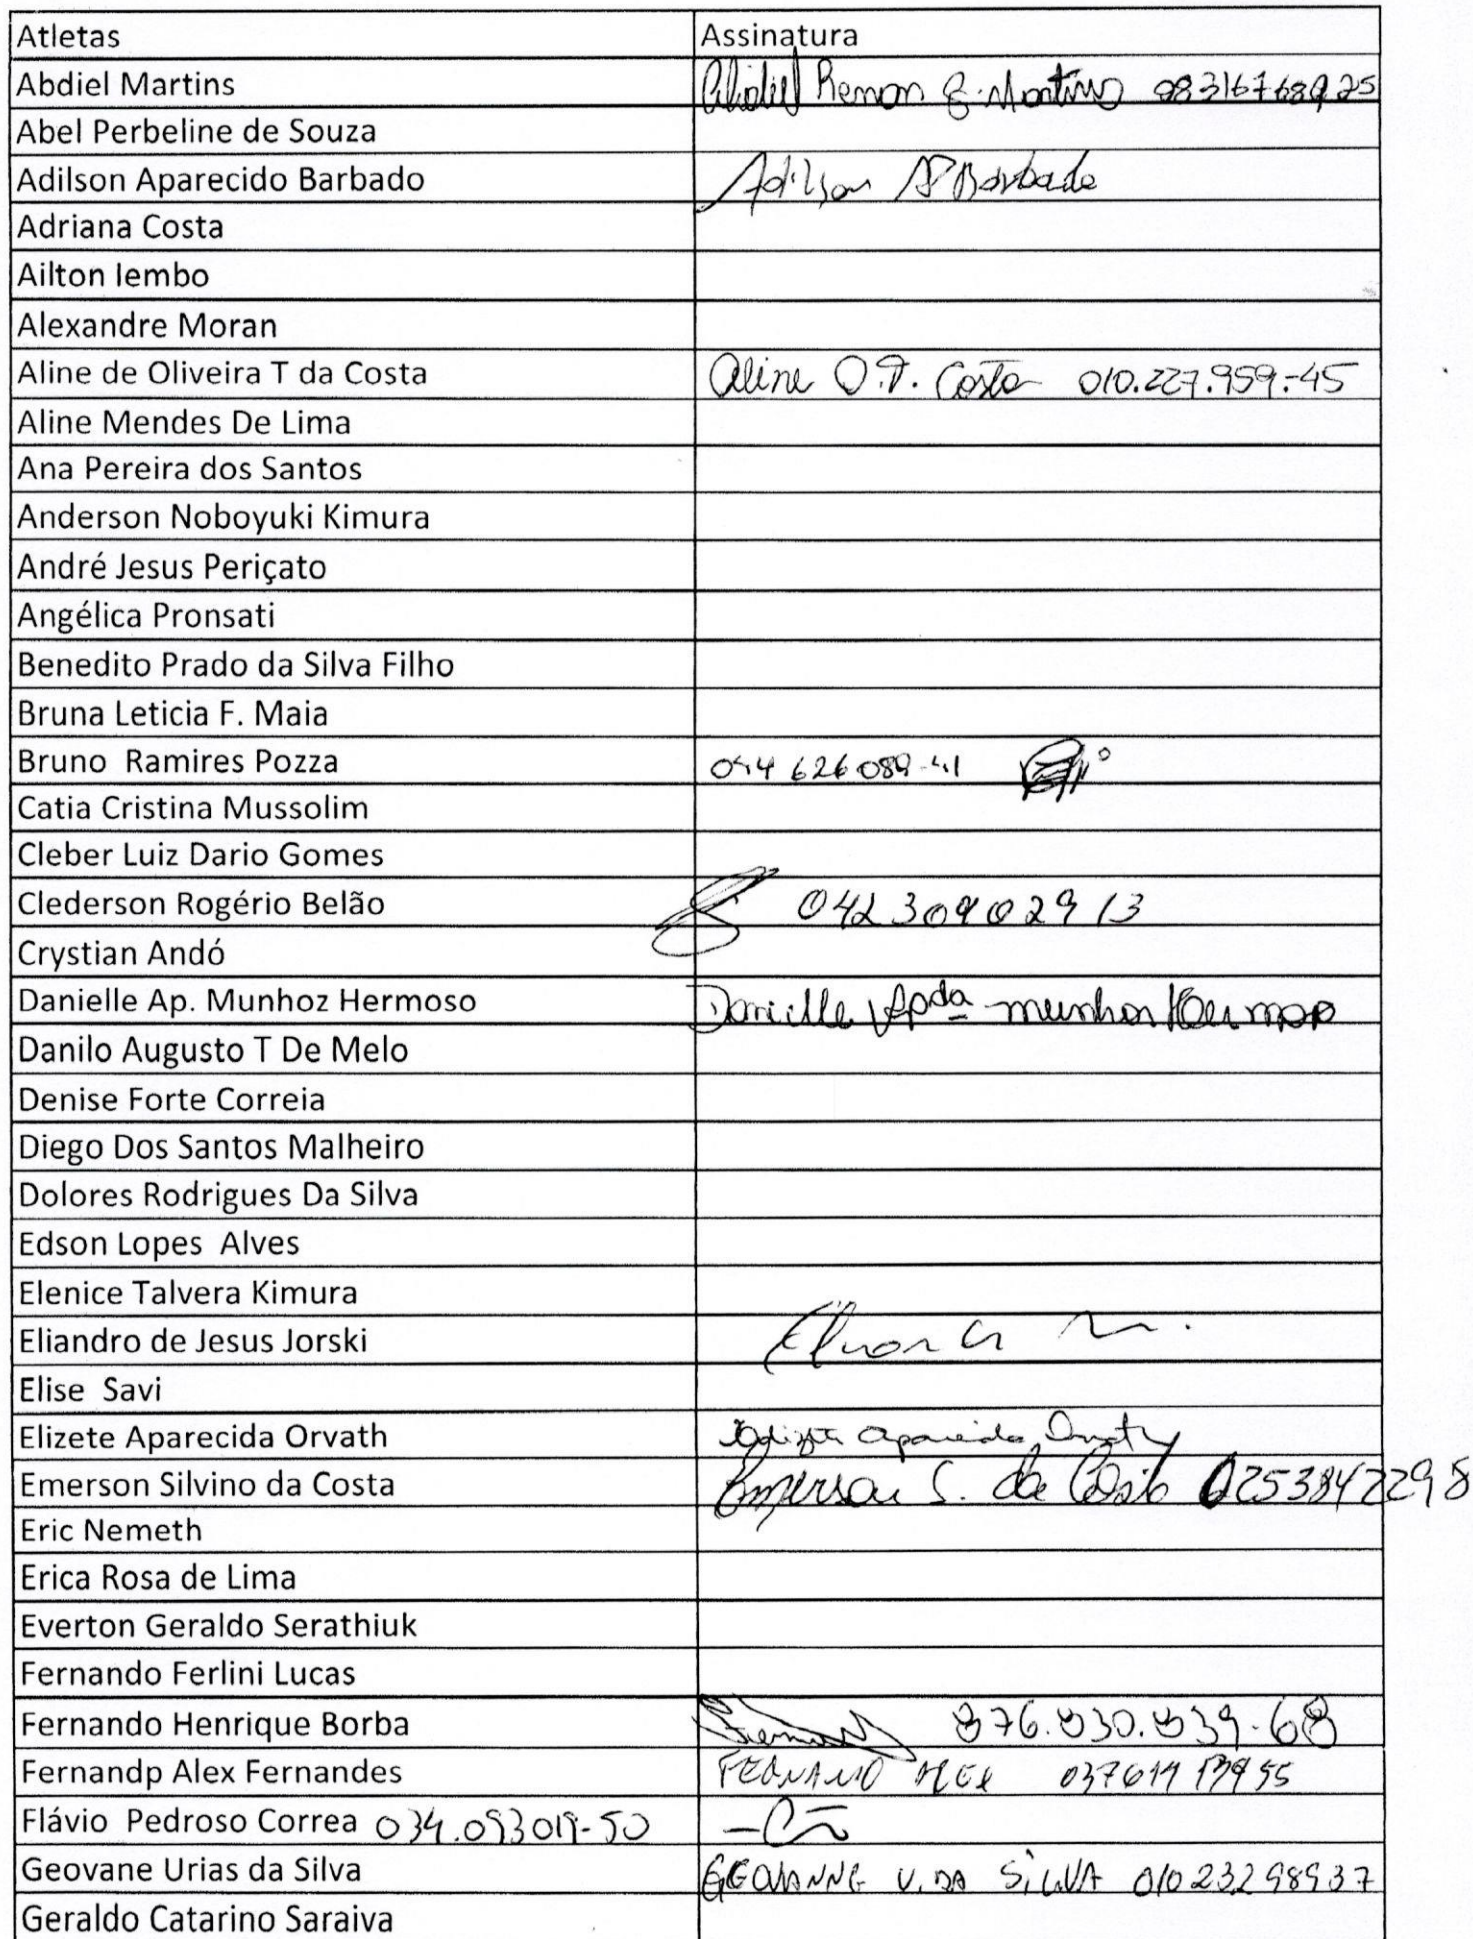 Atletas Assinatura
Abdiel Martins Abdiel Ramon G. Martins 08316768925
Abel Perbeline de Souza
Adilson Aparecido Barbado Adilson AP Barbado
Adriana Costa
Ailton Iembo
Alexandre Moran
Aline de Oliveira T da Costa Aline O.T. Costa 010.227.959-45
Aline Mendes De Lima
Ana Pereira dos Santos
Anderson Noboyuki Kimura
André Jesus Periçato
Angélica Pronsati
Benedito Prado da Silva Filho
Bruna Leticia F. Maia
Bruno Ramires Pozza 044 626 089-41
Catia Cristina Mussolim
Cleber Luiz Dario Gomes
Clederson Rogério Belão 042 309 029 13
Crystian Andó
Danielle Ap. Munhoz Hermoso Danielle Apda munhoz Hermoso
Danilo Augusto T De Melo
Denise Forte Correia
Diego Dos Santos Malheiro
Dolores Rodrigues Da Silva
Edson Lopes Alves
Elenice Talvera Kimura
Eliandro de Jesus Jorski
Elise Savi
Elizete Aparecida Orvath Elizete Aparecida Orvath
Emerson Silvino da Costa Emerson S. da Costa 02538472298
Eric Nemeth
Erica Rosa de Lima
Everton Geraldo Serathiuk
Fernando Ferlini Lucas
Fernando Henrique Borba 876.830.839-68
Fernandp Alex Fernandes FERNANDO ALEX
Flávio Pedroso Correa 034.093019-50
Geovane Urias da Silva GEOVANNE U. DA SILVA 01023298937
Geraldo Catarino Saraiva